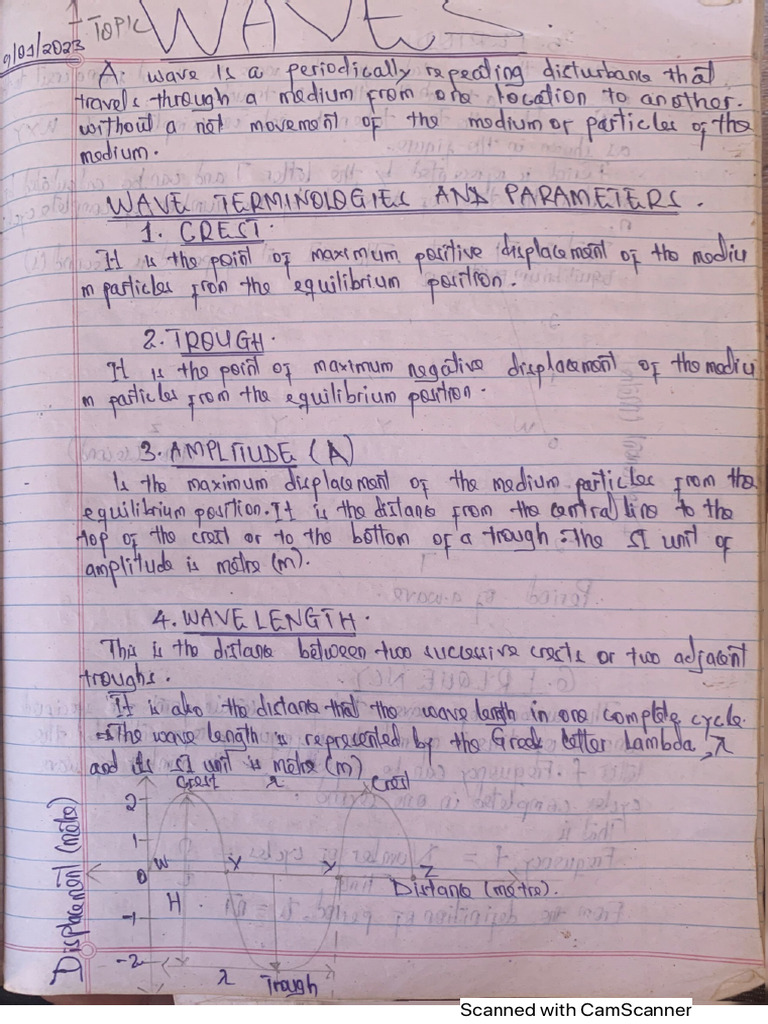 9/01/2023
TOPIC WAVES
A wave is a periodically repeating disturbance that
travels through a medium from one location to another.
without a net movement of the medium or particles of the
medium.
WAVE TERMINOLOGIES AND PARAMETERS.
1. CREST.
It is the point of maximum positive displacement of the mediu
m particles from the equilibrium position.
2. TROUGH.
It is the point of maximum negative displacement of the mediu
m particles from the equilibrium position.
3. AMPLITUDE (A)
Is the maximum displacement of the medium particles from the
equilibrium position. It is the distance from the central line to the
top of the crest or to the bottom of a trough. The SI unit of
amplitude is metre (m).
4. WAVE LENGTH.
This is the distance between two successive crests or two adjacent
troughs.
It is also the distance that the wave length in one complete cycle.
The wave length is represented by the Greek letter Lambda, λ
and its SI unit is metre (m)
Crest λ Crest
Displacement (metre)
2
1
0 W X Y Z
Distance (metre).
-1 H
-2
λ Trough
Scanned with CamScanner